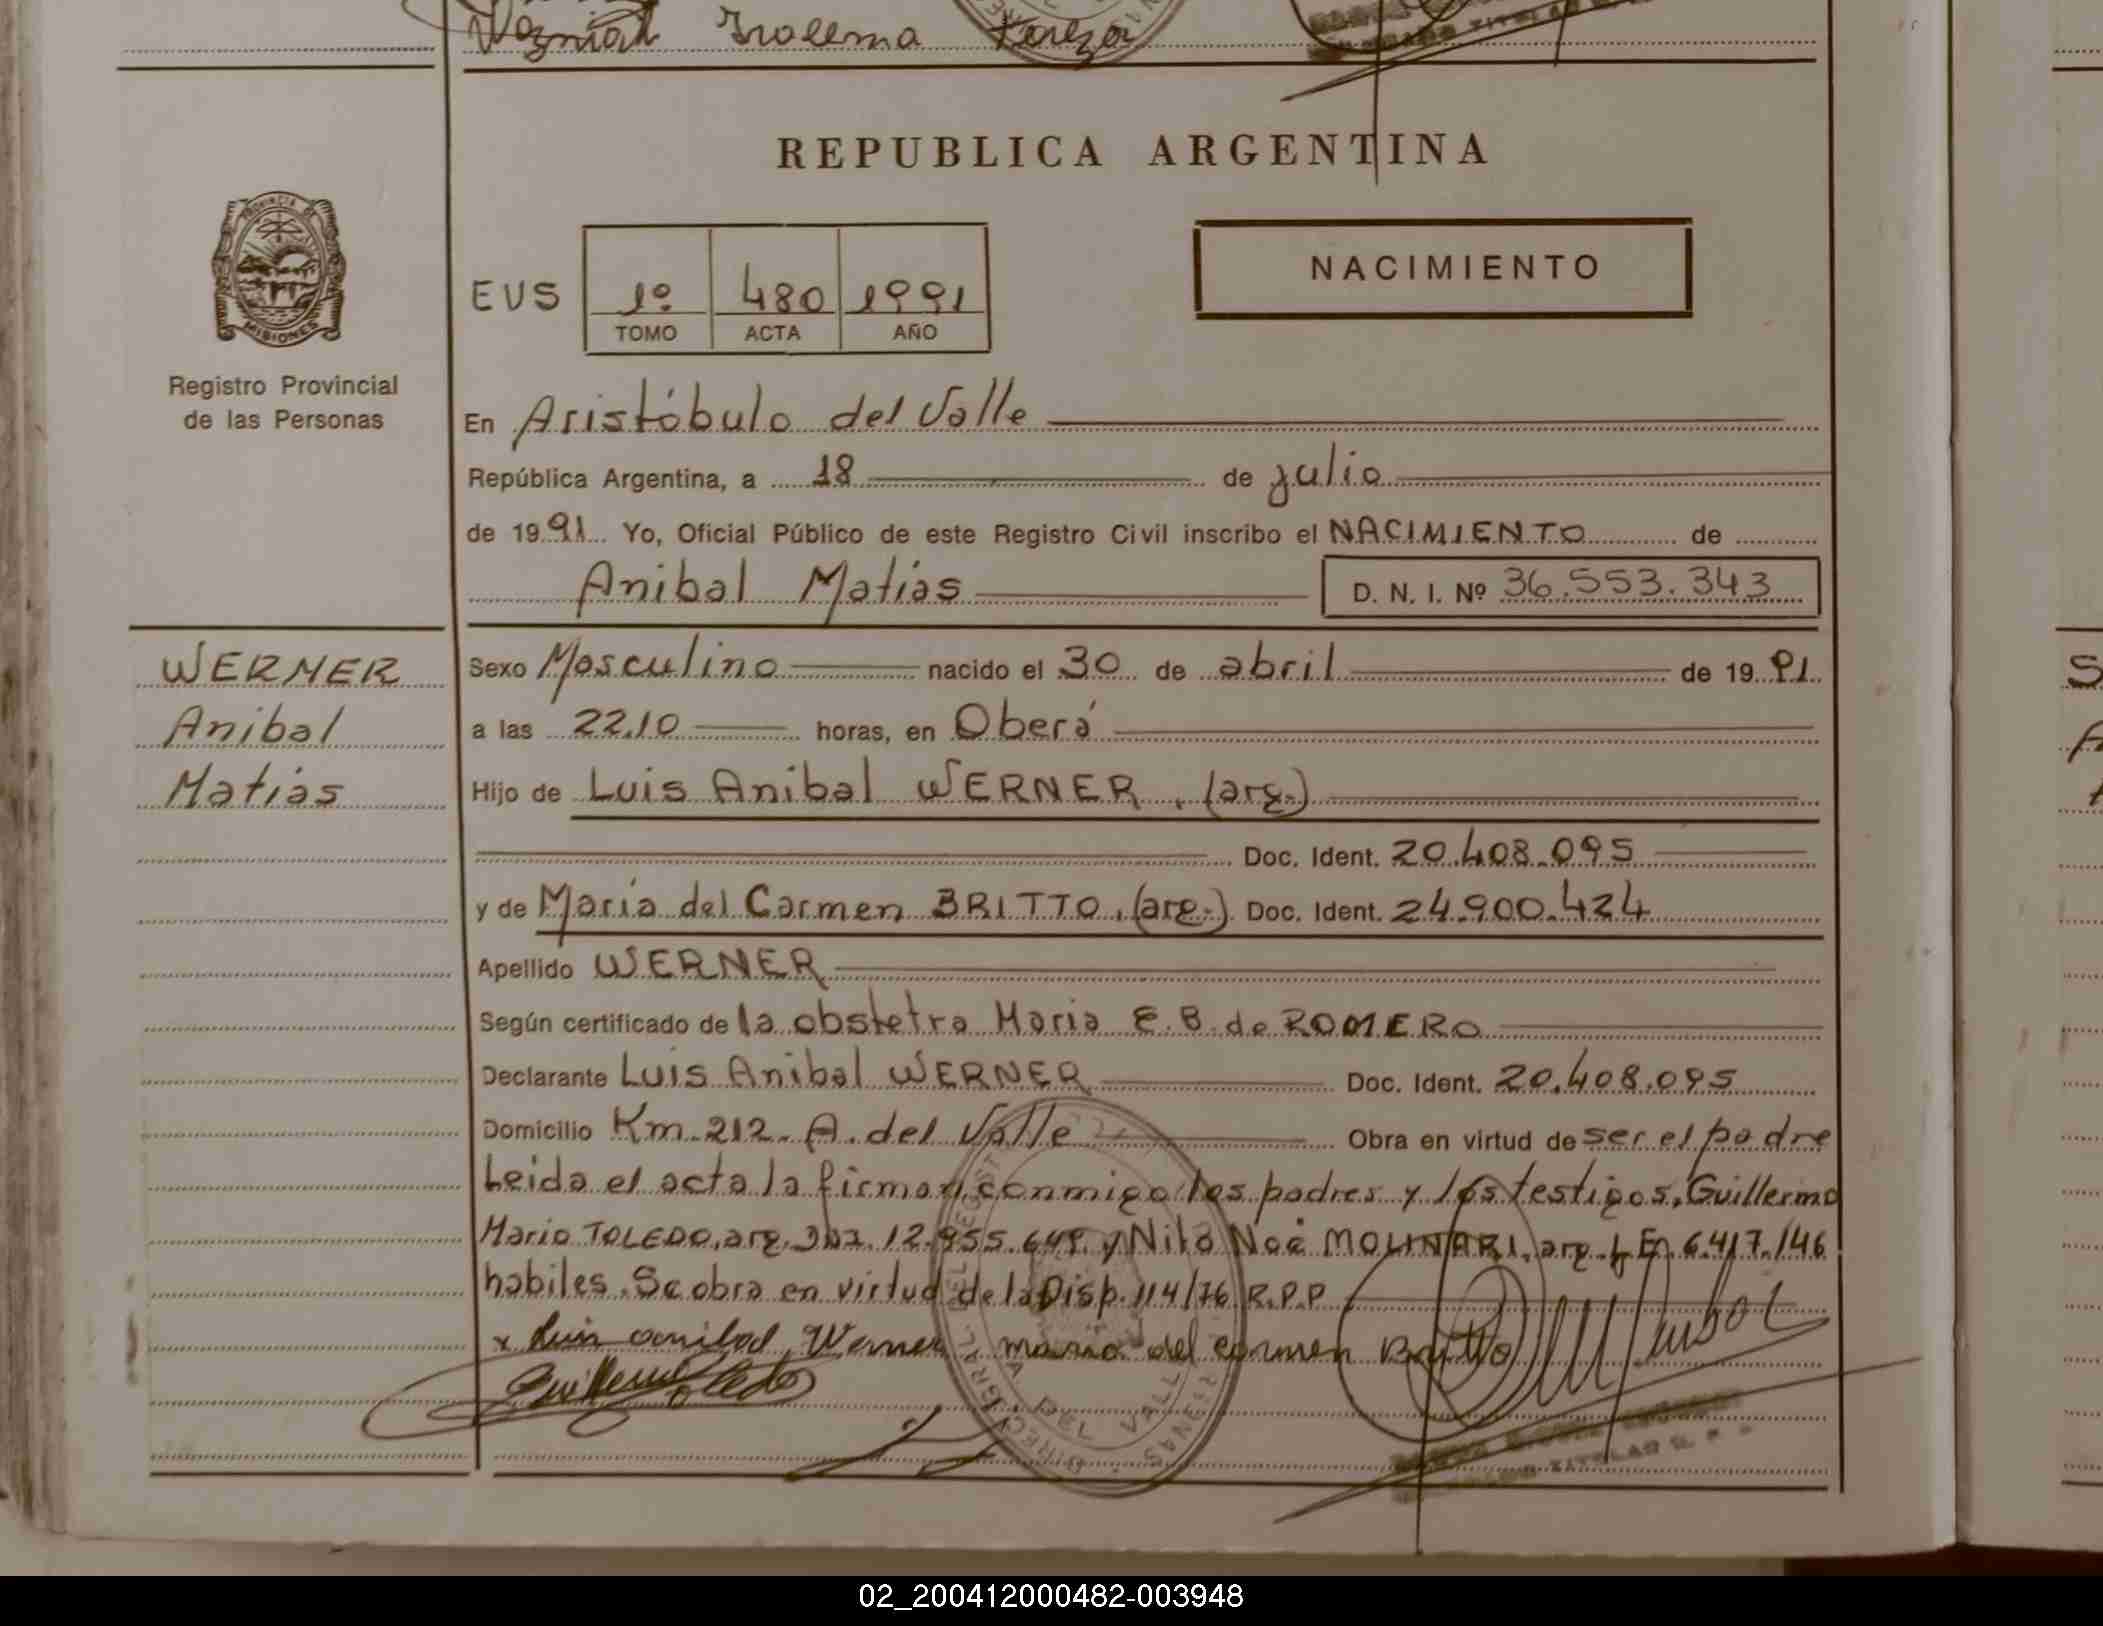 Irolema
REPUBLICA ARGENTINA
PROVINCIA DE
MISIONES
Registro Provincial
de las Personas
EUS 1º 480 1991
TOMO ACTA AÑO
NACIMIENTO
En Aristóbulo del Valle
República Argentina, a 18 de julio
de 1991 Yo, Oficial Público de este Registro Civil inscribo el NACIMIENTO de
Anibal Matias D. N. I. Nº 36.553.343
WERNER
Anibal
Matias
Sexo Masculino nacido el 30 de abril de 1991
a las 22,10 horas, en Oberá
Hijo de Luis Anibal WERNER, (arg.)
Doc. Ident. 20.408.095
y de María del Carmen BRITTO, (arg.) Doc. Ident. 24.900.424
Apellido WERNER
Según certificado de la obstetra Maria E. B. de ROMERO
Declarante Luis Anibal WERNER Doc. Ident. 20.408.095
Domicilio Km. 212. A. del Valle Obra en virtud de ser el padre
Leida el acta la firman conmigo los padres y los testigos, Guillermo
Mario TOLEDO, arg. 12.955.649 y Nilo Noé MOLINARI, arg. L.E. 6.417.146
habiles. Se obra en virtud de la Disp. 114/76 R.P.P
x Luis anibal Werner maria del carmen Britto
Guillermo Toledo
A. DEL VALLE
TITULAR
02_200412000482-003948